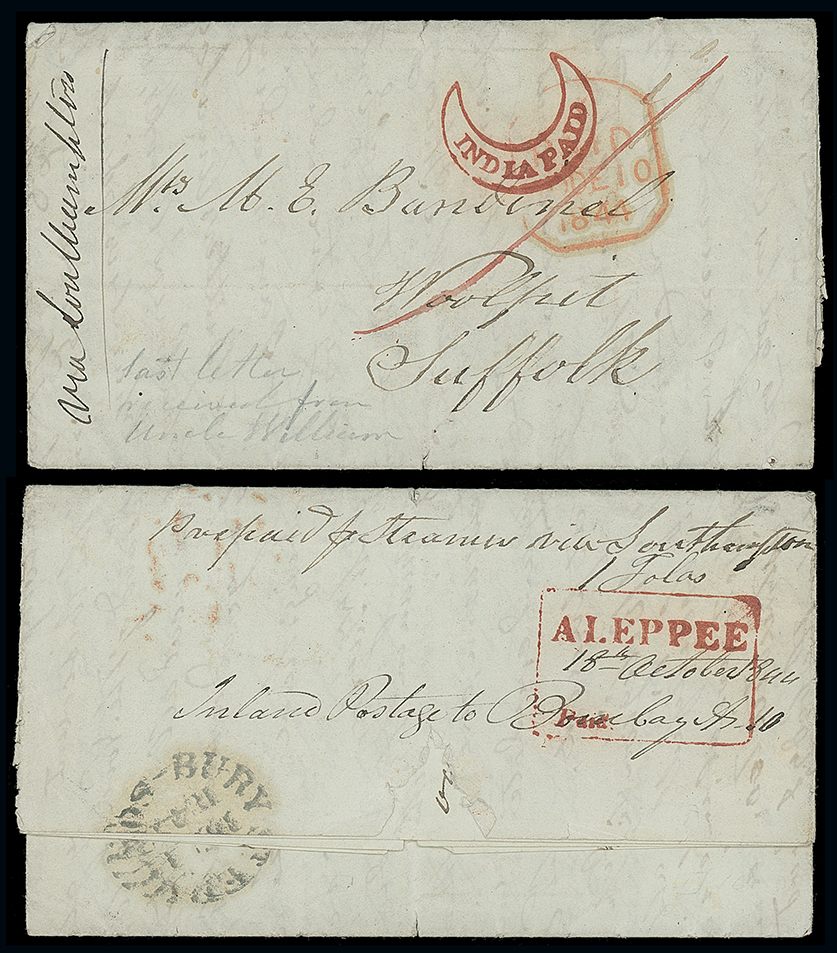 via Southampton
INDIA PAID
DE 10
1844
Mrs M. E. Bandinel
Woolpit
Suffolk
last letter
received from
Uncle William
Prepaid p Steamer via Southampton
1 Tolas
ALEPPEE
18th October 1844
Inland Postage to Bombay As 10
Paid
BURY ST EDMUNDS